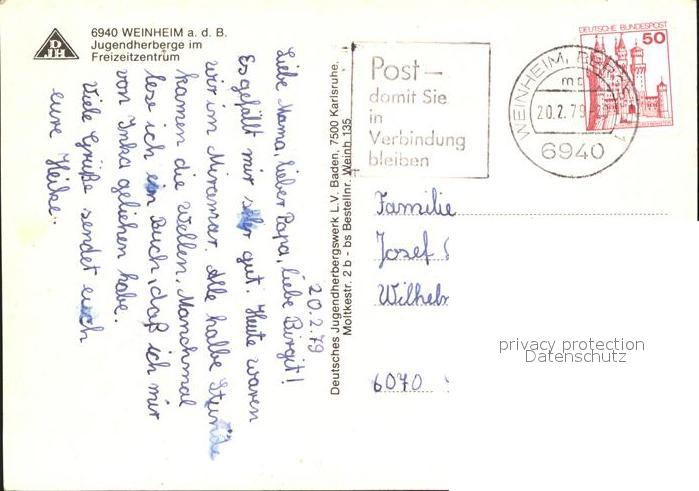 6940 WEINHEIM a. d. B.
Jugendherberge im
Freizeitzentrum
DJH
20.2.79
Liebe Mama, lieber Papa, liebe Birgit!
Es gefällt mir sehr gut. Heute waren
wir im Miramar. Alle halbe Stunde
kamen die Wellen. Manchmal
lese ich ein Buch, daß ich mir
von Inka geliehen habe.
Viele Grüße sendet euch
eure Heike.
Deutsches Jugendherbergswerk L.V. Baden, 7500 Karlsruhe,
Moltkestr. 2 b - bs Bestellnr. Weinh 135
Post-
damit Sie
in
Verbindung
bleiben
WEINHEIM, BERGSTR
mc
20.2.79
1
6940
DEUTSCHE BUNDESPOST
50
Familie
Josef
Wilhelm
6070
privacy protection
Datenschutz